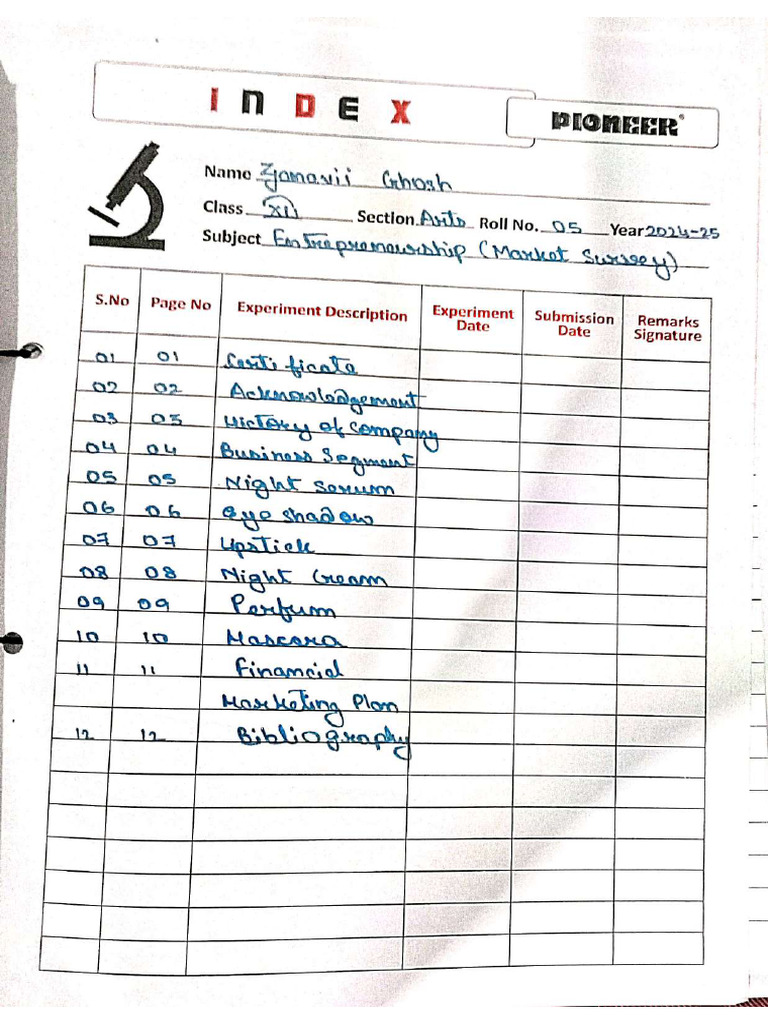 INDEX
PIONEER
Name Zjanavii Ghosh
Class XII Section Arts Roll No. 05 Year 2024-25
Subject Entrepreneurship (Market Survey)
S.No Page No Experiment Description Experiment Date Submission Date Remarks Signature
01 01 Certificate
02 02 Acknowledgement
03 03 History of company
04 04 Business Segment
05 05 Night Serum
06 06 eye shadow
07 07 Lipstick
08 08 Night Cream
09 09 Perfum
10 10 Mascara
11 11 Financial
Marketing Plan
12 12 Bibliography